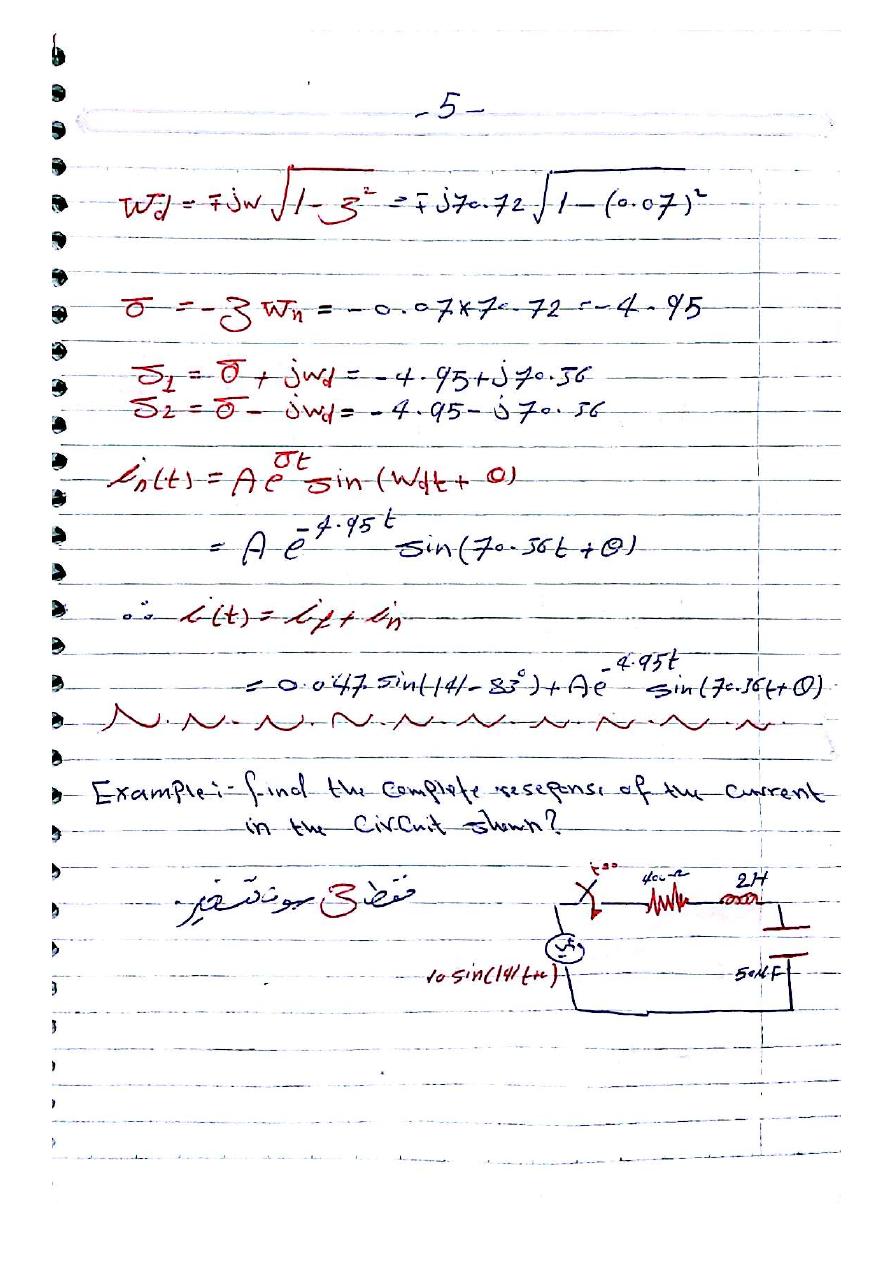 -5-
Wd = ∓jw √1-3² = ∓j70.72 √1-(0.07)²
σ = -3 Wn = -0.07*70.72 = -4.95
S1 = σ + jwd = -4.95+j70.36
S2 = σ - jwd = -4.95-j70.36
in(t) = A e^σt sin(Wdt + θ)
= A e^-4.95t sin(70.36t + θ)
∴ i(t) = if + in
= 0.047 sin(141-83°) + A e^-4.95t sin(70.36t+θ)
Example:- find the complete
of the current
in the circuit shown?
t=0 400Ω 2H
فقط 3 سوف تتغير
10 sin(141t+
50MF